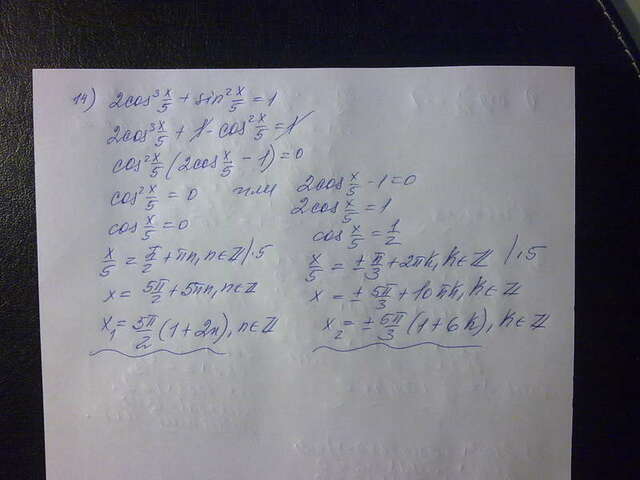 14) 2cos³ x/5 + sin² x/5 = 1
2cos³ x/5 + 1 - cos² x/5 = 1
cos² x/5 (2cos x/5 - 1) = 0
cos² x/5 = 0 или 2cos x/5 - 1 = 0
cos x/5 = 0
x/5 = π/2 + πn, n∈ℤ /·5
x = 5π/2 + 5πn, n∈ℤ
x₁ = 5π/2 (1+2n), n∈ℤ
2cos x/5 = 1
cos x/5 = 1/2
x/5 = ± π/3 + 2πk, k∈ℤ /·5
x = ± 5π/3 + 10πk, k∈ℤ
x₂ = ± 5π/3 (1+6k), k∈ℤ